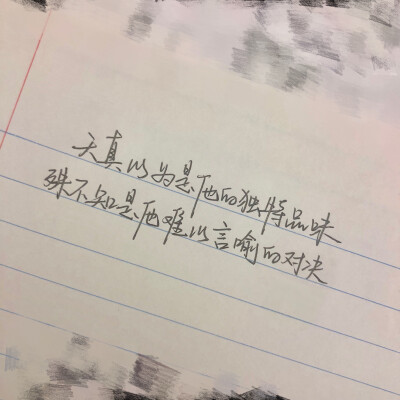 天真以为是他的独特品味
殊不知是他难以言喻的对决